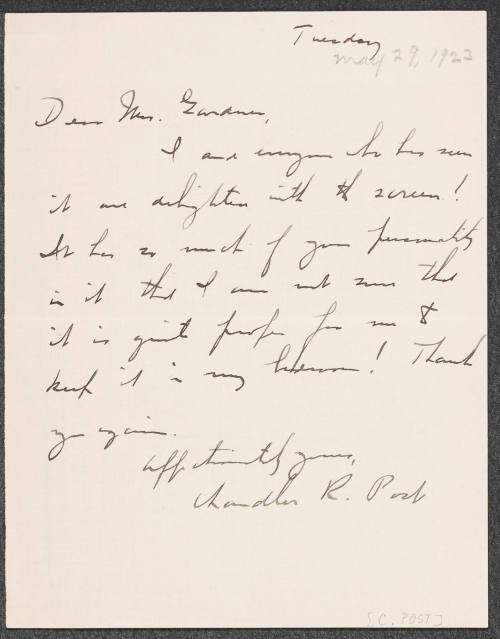 Tuesday
May 29, 1923
Dear Mrs. Gardner,
I and everyone who has seen
it are delighted with the screen!
It has so much of your personality
in it that I am not sure that
it is quite proper for me to
keep it in my bedroom! Thank
you again.
Affectionately yours,
Chandler R. Post
[C. POST]